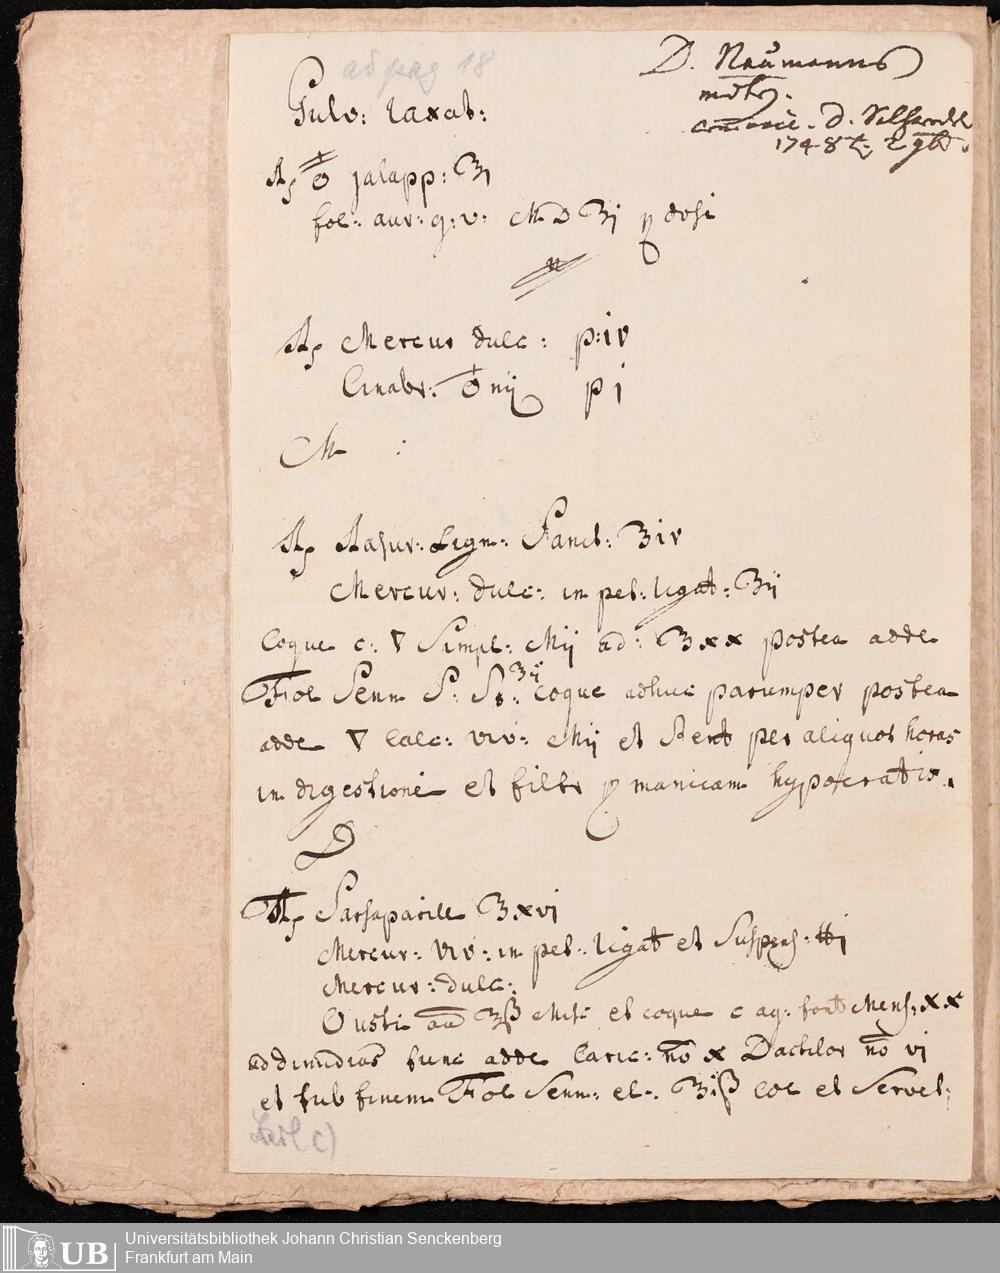 ad pag 18
D. Naumanns
174-8
Pulv: laxat:
℞ jalapp: ʒj
fol: aur: q: v: M D ʒj dosi
℞ Mercur dulc: p: iv
Cinabr: ♁ nij p j
M :
℞ Rasur: Lign: Sanct: ʒiv
Mercur: dulc: in pet: ligat: ʒij
Coque c: ▽ Simpl: Mij ad: ʒxx postea adde
Fol Senn S: St: ʒij coque adhuc parumper postea
adde ▽ Calc: viv: Mij et Stent per aliquot horas
in digestione et filtr p manicam hypocratis.
D
℞ Sarsaparill ʒxvi
Mercur: viv: in pet: ligat et Suspens: ℔i
Mercur: dulc:
Usti aa ʒß Misc et coque c aq: font Mens: xx
ad dimidias tunc adde Caric: no x Dactilor no vi
et sub finem Fol Senn: el: ʒiß col et Servet:
Universitätsbibliothek Johann Christian Senckenberg
UB
Frankfurt am Main